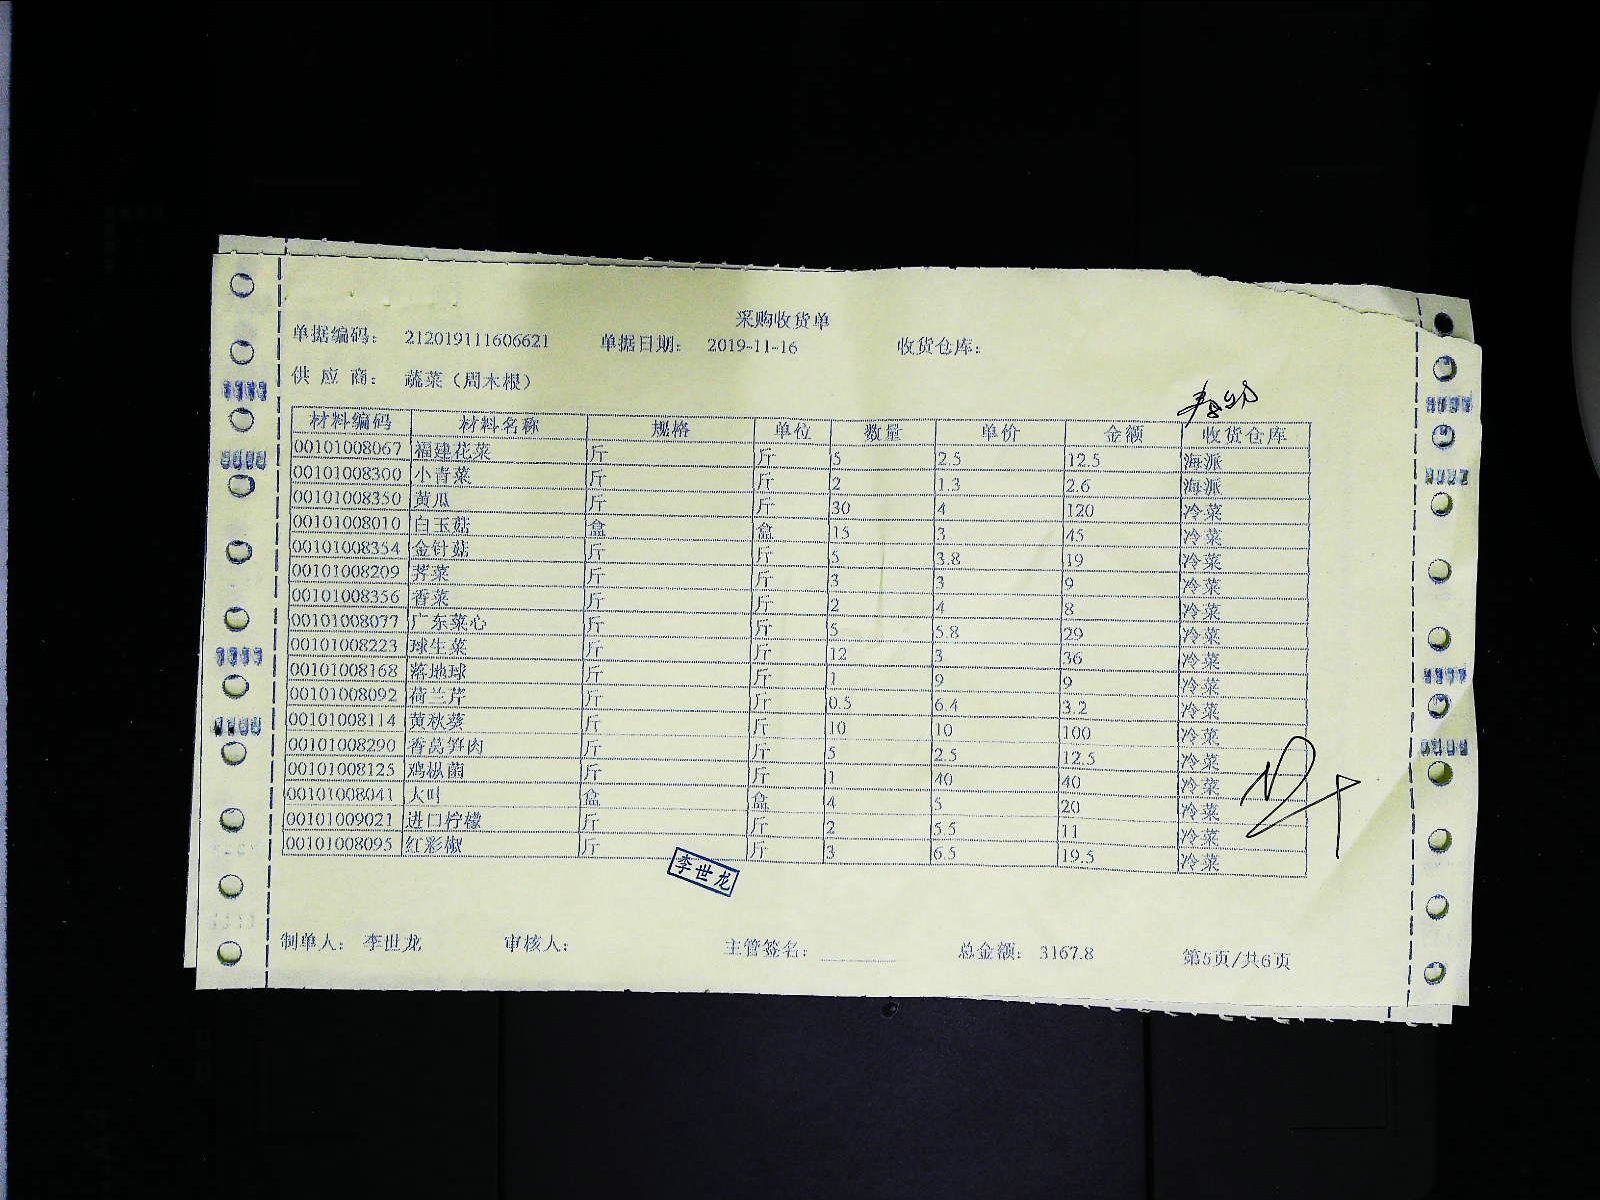 采购收货单
单据编码: 212019111606621 单据日期: 2019-11-16 收货仓库:
供 应 商: 蔬菜（周木根）
材料编码 材料名称 规格 单位 数量 单价 金额 收货仓库
00101008067 福建花菜 斤 斤 5 2.5 12.5 海派
00101008300 小青菜 斤 斤 2 1.3 2.6 海派
00101008350 黄瓜 斤 斤 30 4 120 冷菜
00101008010 白玉菇 盒 盒 15 3 45 冷菜
00101008354 金针菇 斤 斤 5 3.8 19 冷菜
00101008209 荠菜 斤 斤 3 3 9 冷菜
00101008356 香菜 斤 斤 2 4 8 冷菜
00101008077 广东菜心 斤 斤 5 5.8 29 冷菜
00101008223 球生菜 斤 斤 12 3 36 冷菜
00101008168 落地球 斤 斤 1 9 9 冷菜
00101008092 荷兰芹 斤 斤 0.5 6.4 3.2 冷菜
00101008114 黄秋葵 斤 斤 10 10 100 冷菜
00101008290 香莴笋肉 斤 斤 5 2.5 12.5 冷菜
00101008125 鸡枞菌 斤 斤 1 40 40 冷菜
00101008041 大叶 盒 盒 4 5 20 冷菜
00101009021 进口柠檬 斤 斤 2 5.5 11 冷菜
00101008095 红彩椒 斤 斤 3 6.5 19.5 冷菜
李世龙
制单人: 李世龙 审核人: 主管签名: 总金额: 3167.8 第5页/共6页